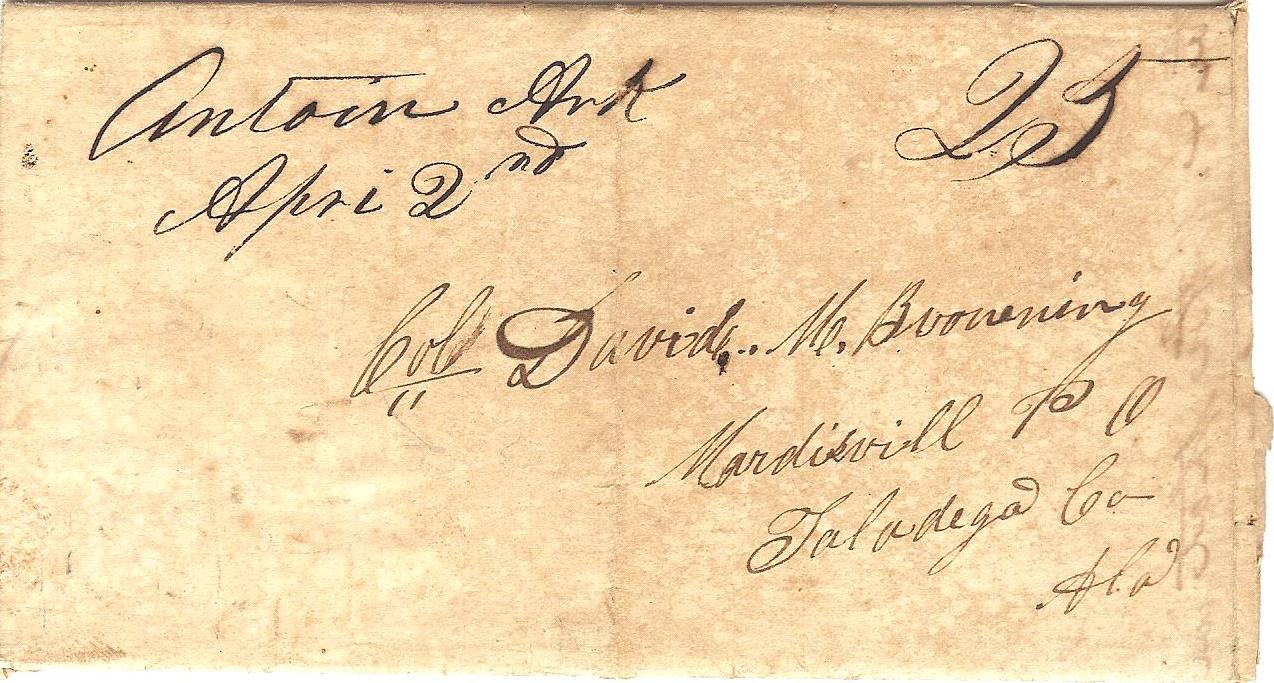 Antoin Ark 25
Apri 2nd
Col David M. Browning
Mardisvill P O
Taladega Co
Ala